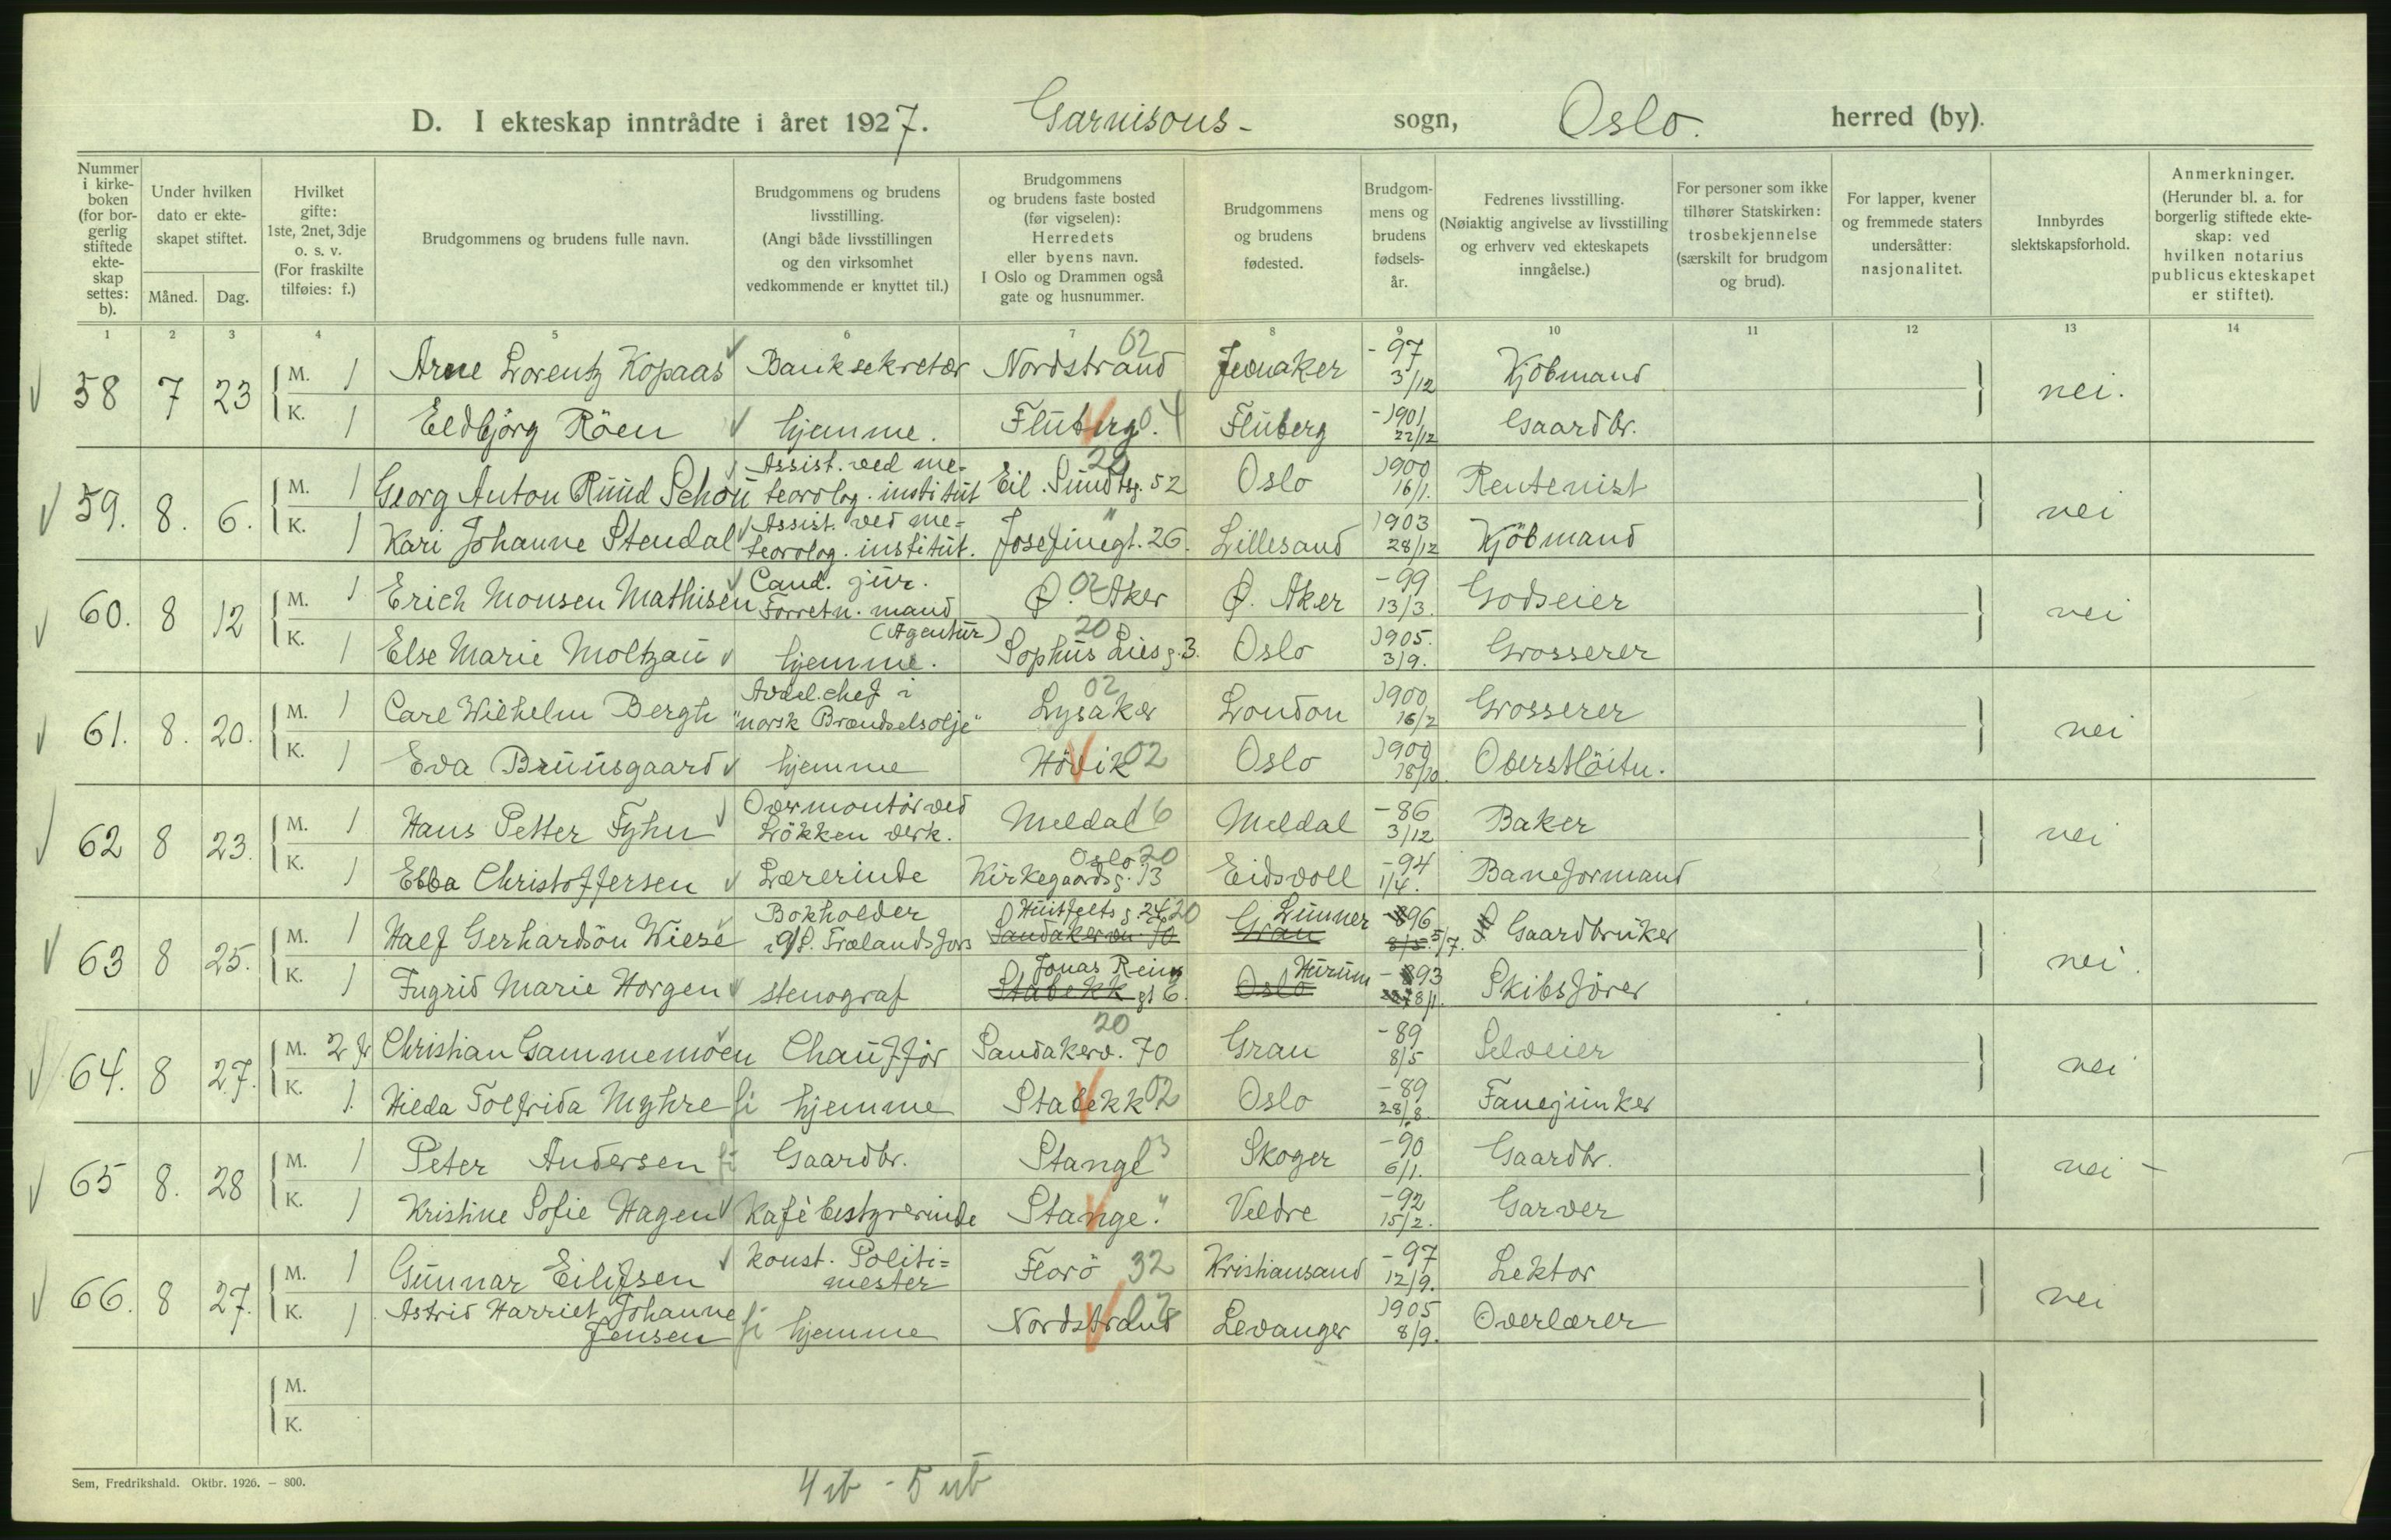 D. I ekteskap inntrådte i året 1927. Garnisons- sogn, Oslo. herred (by).
Nummer i kirkeboken (for borgerlig stiftede ekteskap settes: b).
Under hvilken dato er ekteskapet stiftet.
Måned. Dag.
Hvilket gifte: 1ste, 2net, 3dje o. s. v. (For fraskilte tilføies: f.)
Brudgommens og brudens fulle navn.
Brudgommens og brudens livsstilling. (Angi både livsstillingen og den virksomhet vedkommende er knyttet til.)
Brudgommens og brudens faste bosted (før vigselen): Herredets eller byens navn. I Oslo og Drammen også gate og husnummer.
Brudgommens og brudens fødested.
Brudgommens og brudens fødselsår.
Fedrenes livsstilling. (Nøiaktig angivelse av livsstilling og erhverv ved ekteskapets inngåelse.)
For personer som ikke tilhører Statskirken: trosbekjennelse (særskilt for brudgom og brud).
For lapper, kvener og fremmede staters undersåtter: nasjonalitet.
Innbyrdes slektskapsforhold.
Anmerkninger. (Herunder bl. a. for borgerlig stiftede ekteskap: ved hvilken notarius publicus ekteskapet er stiftet).
1 2 3 4 5 6 7 8 9 10 11 12 13 14
58 7 23 M. 1 Arne Lorentz Kopaas Banksekretær Nordstrand 02 Jevnaker -97 3/12 Kjöbmand nei.
K. 1 Eldbjörg Röen hjemme. Fluberg. 04 Fluberg -1901 22/12 Gaardbr.
59. 8. 6. M. 1 Georg Anton Ruud Schou Assist. ved me-teorolog. institut Eil. Sundtsg. 52 20 Oslo 1900 16/1. Rentenist nei
K. 1 Kari Johanne Stendal Assist. ved me=teorolog. institut. Josefinegt. 26. " Lillesand 1903 28/12 Kjöbmand
60. 8 12 M. 1 Erich Monsen Mathisen Cand. jur. Forretn. mand (Agentur) Ø. Aker 02 Ø. Aker -99 13/3. Godseier nei
K. 1 Else Marie Moltzau hjemme. Sophus Lies g. 3. 20 Oslo 1905. 3/9. Grosserer
61. 8. 20. M. 1 Carl Wilhelm Bergh Avdel.chef i "norsk Brændselsolje" Lysaker 02 London 1900 16/2 Grosserer nei
K. 1 Eva Bruusgaard hjemme Hövik 02 Oslo 1900 18/10. Oberstlöitn.
62 8 23. M. 1 Hans Petter Fyhn Overmontör ved Lökken verk. Meldal 16 Meldal -86 3/12 Baker nei
K. 1 Ebba Christoffersen Lærerinde Oslo 20 Kirkegaardsg. 13 Eidsvoll -94 1/4. Baneformand
63 8 25. M. 1 Half Gerhardsön Wiese Bokholder i A/S. Frælandsfors Huitfelts g. 24 20 Sandakerv. 70 Lunner Gran -896 8/5. 5/7. Gaardbruker nei.
K. 1 Ingrid Marie Horgen stenograf Jonas Reins gt 6. Stabekk Hurum Oslo -893 8/1. Skibsförer
64. 8 27. M. 2 f Christian Gammemoen Chaufför Sandakerv. 70 20 Gran -89 8/5 Selveier nei
K. 1. Hilda Tolfrida Myhre fi hjemme Stabekk 02 Oslo -89 28/8. Fanejunker
65 8. 28 M. 1 Peter Andersen fi Gaardbr. Stange 03 Skoger -90 6/1. Gaardbr. nei -
K. 1 Kristine Sofie Hagen Kafébestyrerinde Stange. " Veldre -92 15/2. Garver
66. 8 27. M. 1 Gunnar Eilifsen konst. Politi=mester Florö 32 Kristiansand -97 12/9. Lektor nei
K. 1 Astrid Harriet Johanne Jensen fi hjemme Nordstrand 02 Levanger 1905 8/9. Overlærer
M.
K.
Sem, Fredrikshald. Oktbr. 1926. — 800.
4 ib - 5 ub